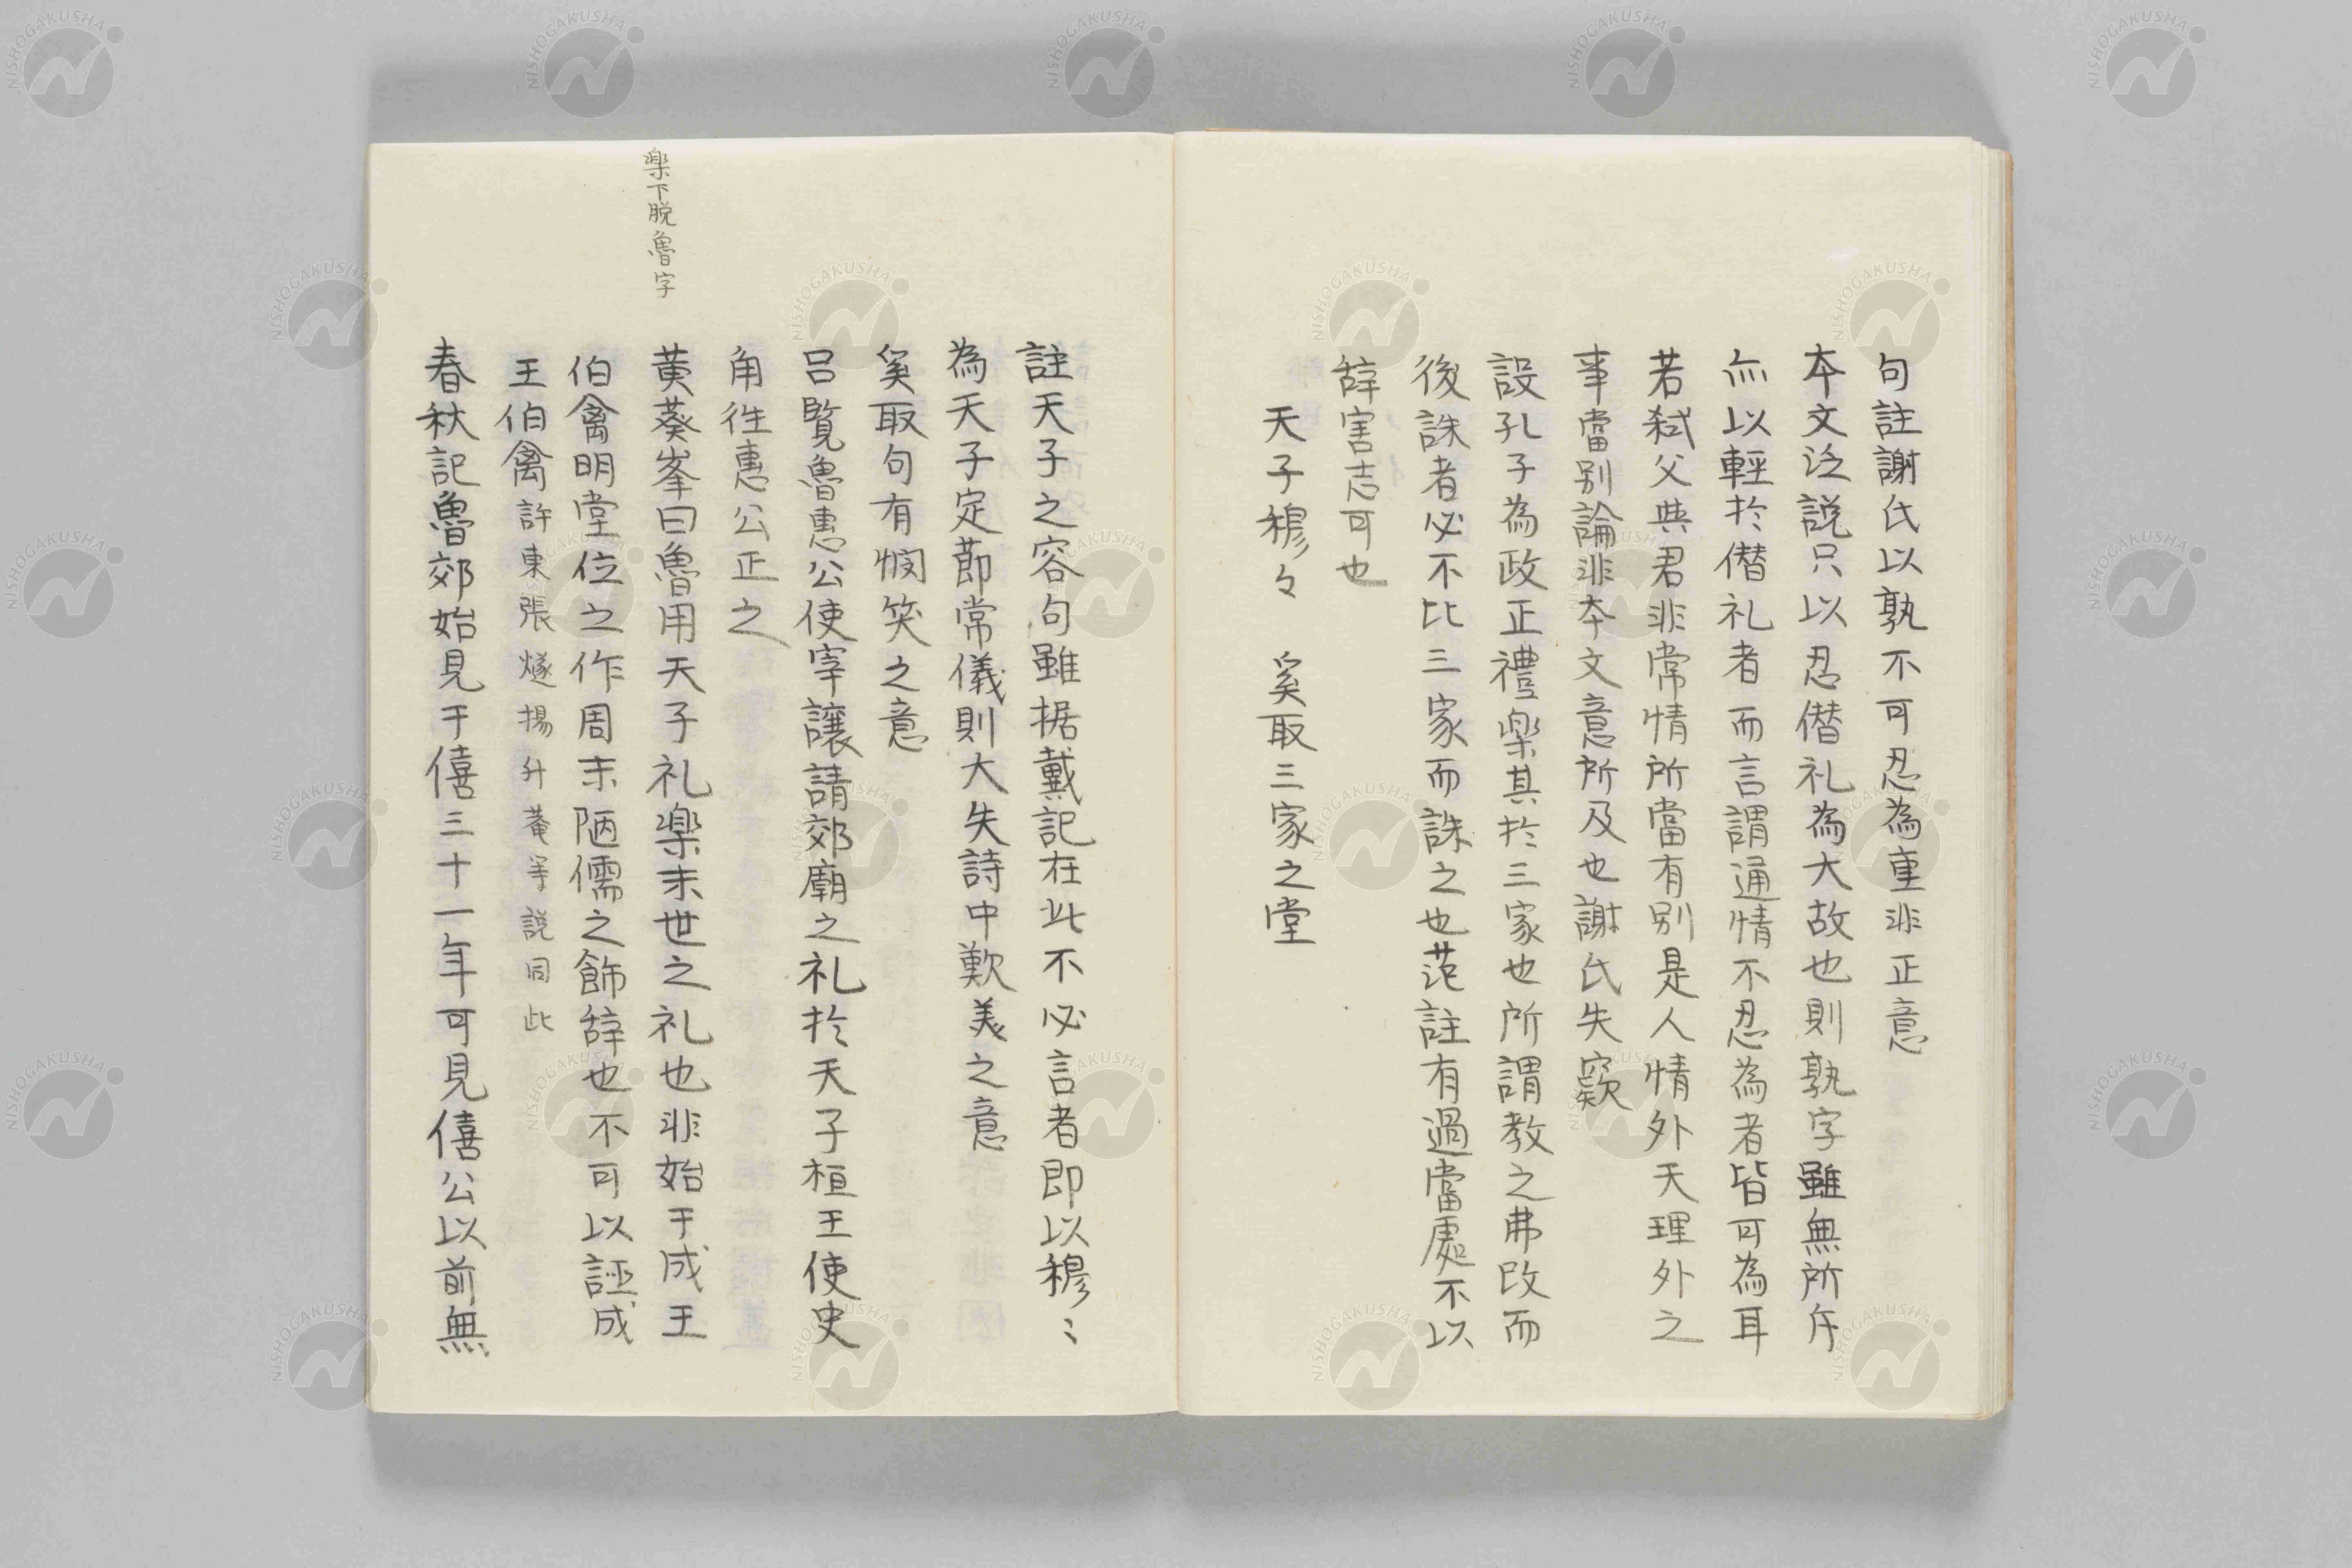 句註謝氏以孰不可忍為重非正意
本文泛説只以忍僭礼為大故也則孰字雖無所斥
亦以輕於僭礼者而言謂通情不忍為者皆可為耳
若弑父與君非常情所當有別是人情外天理外之
事當別論非本文意所及也謝氏失窾
設孔子為政正禮楽其於三家也所謂教之弗改而
後誅者必不比三家而誅之也范註有過當處不以
辞害志可也
天子穆々　奚取三家之堂
註天子之容句雖据戴記在此不必言者即以穆〻
為天子定節常儀則大失詩中歎美之意
奚取句有憫笑之意
呂覧魯恵公使宰譲請郊廟之礼於天子桓王使史
角徃恵公正之
楽下脱魯字
黄葵峯曰魯用天子礼楽末世之礼也非始于成王
伯禽明堂位之作周末陋儒之飾辞也不可以誣成
王伯禽許東張燧揚升菴等説同此
春秋記魯郊始見于僖三十一年可見僖公以前無